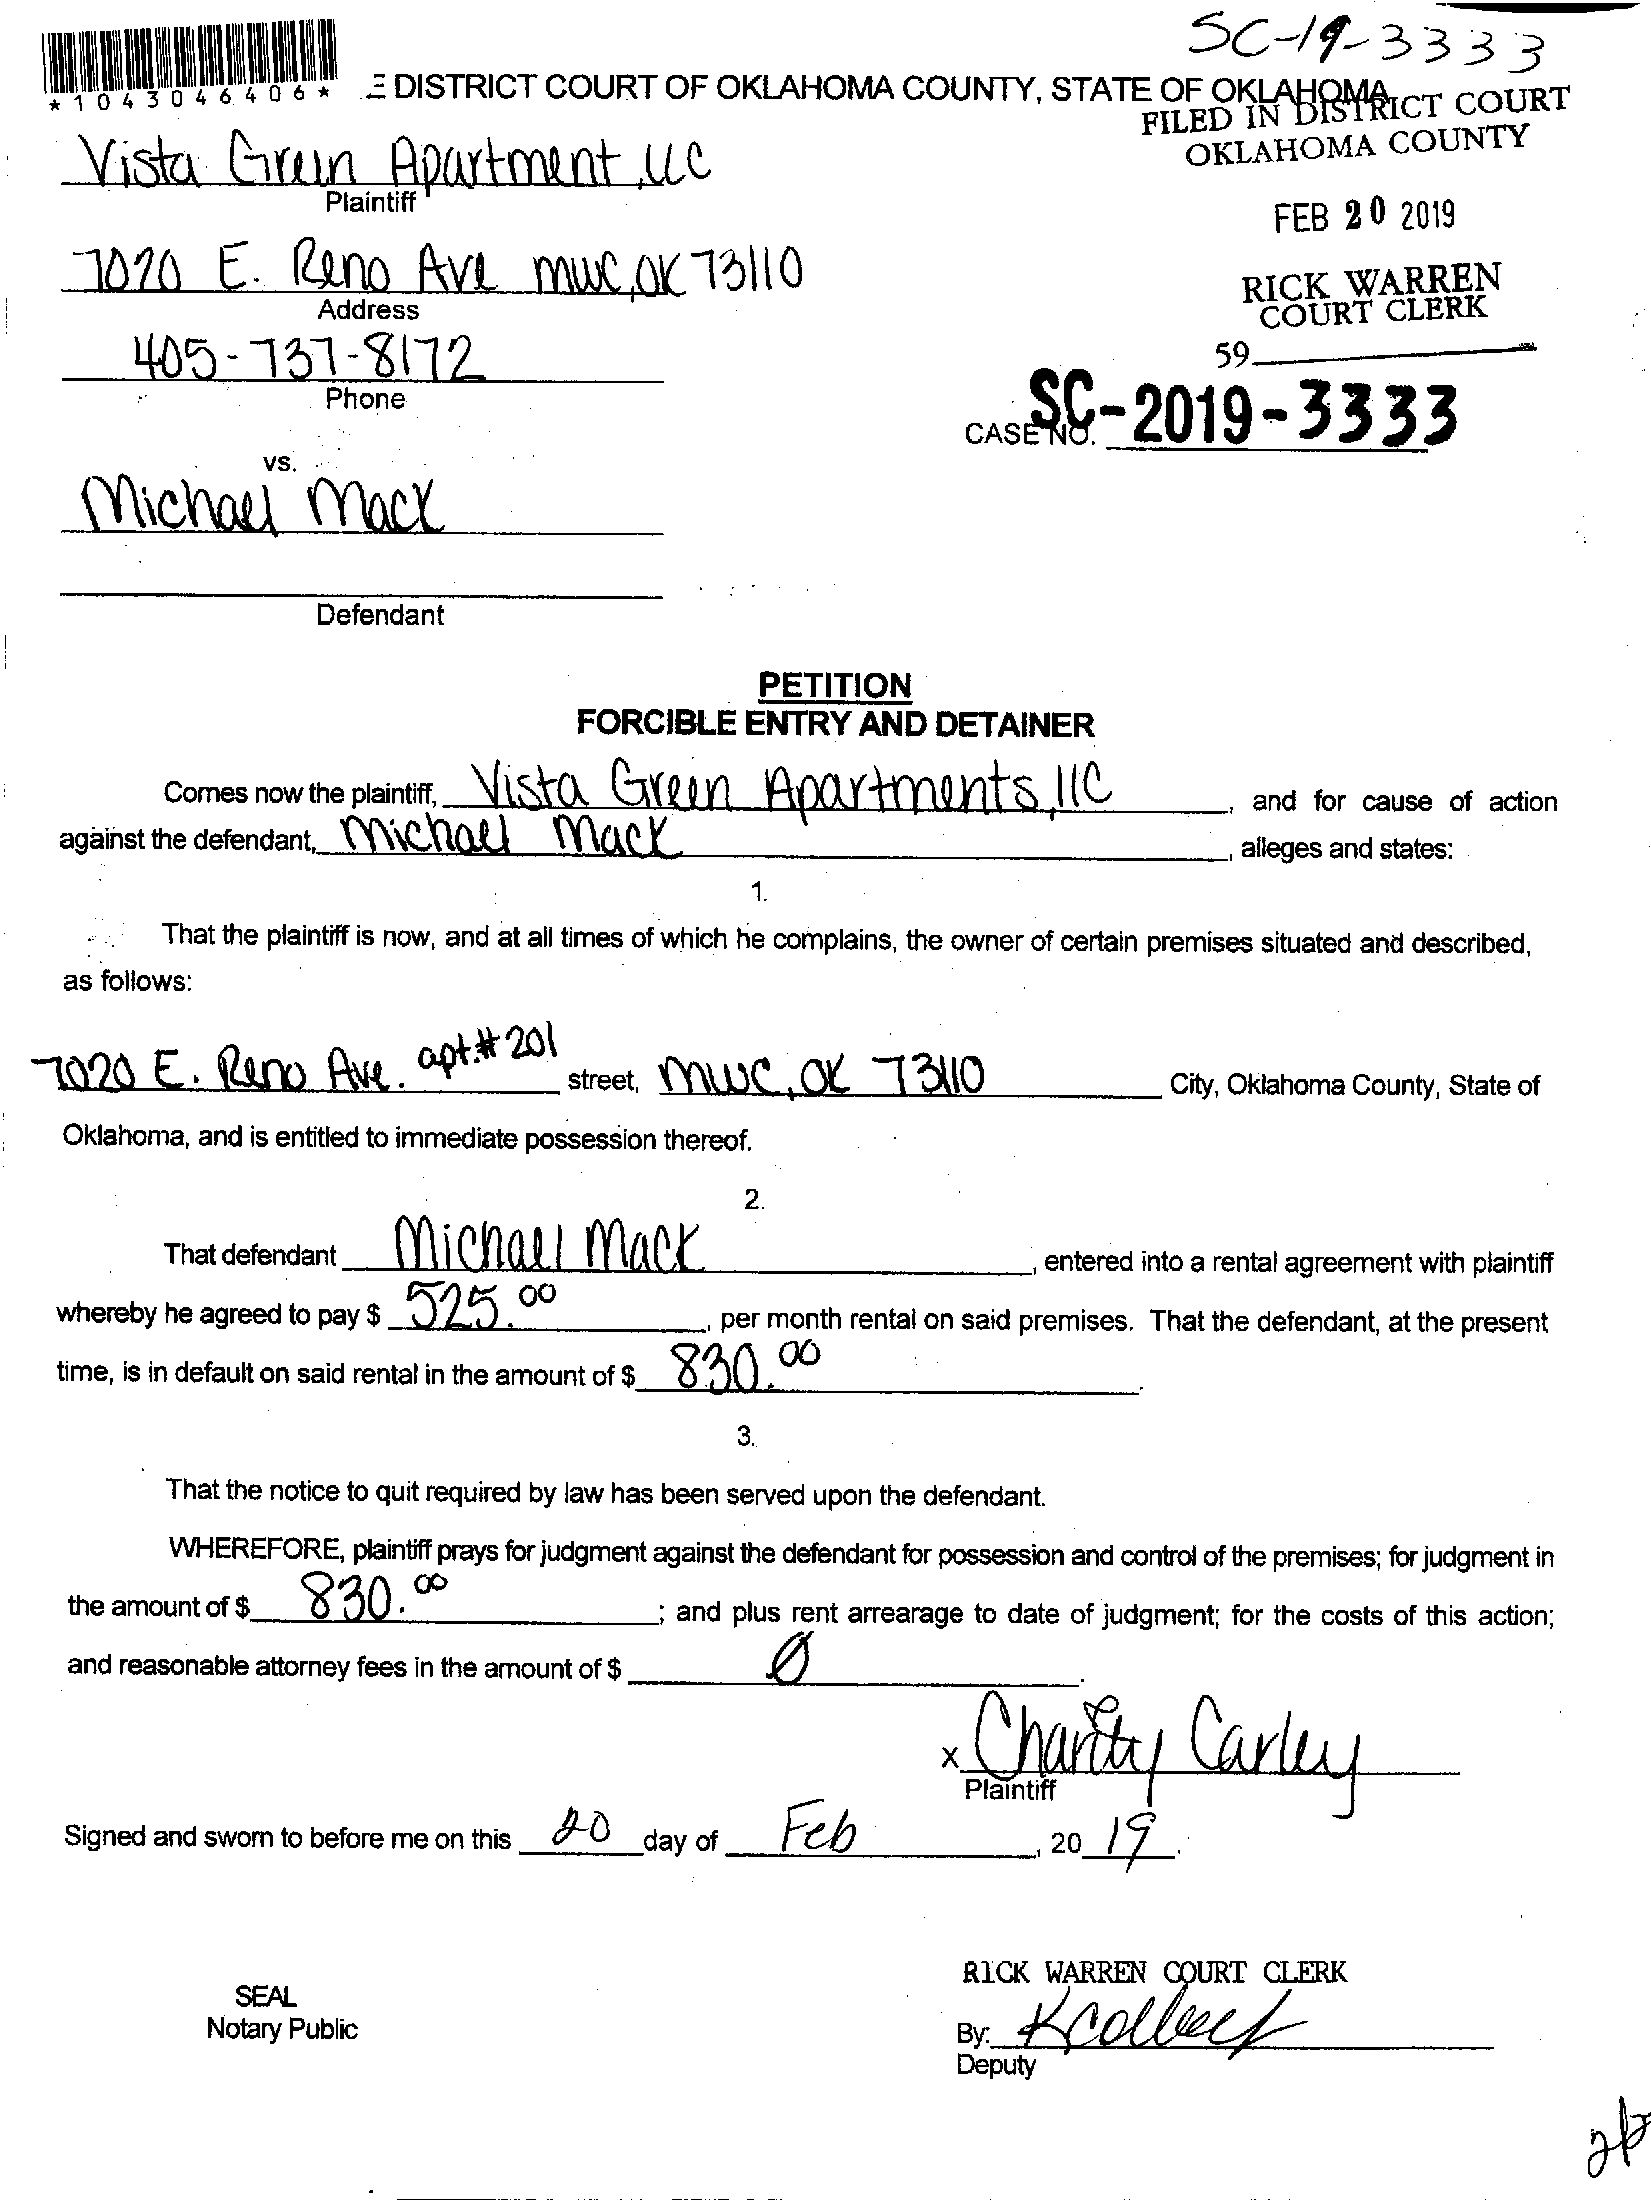 SC-19-3333
*1043046406* E DISTRICT COURT OF OKLAHOMA COUNTY, STATE OF OKLAHOMA
FILED IN DISTRICT COURT
OKLAHOMA COUNTY
Vista Green Apartment, LLC
Plaintiff
FEB 20 2019
7020 E. Reno Ave MWC, OK 73110
Address
RICK WARREN
COURT CLERK
405-737-8172
Phone
59
CASE NO. SC-2019-3333
vs.
Michael Mack
Defendant
PETITION
FORCIBLE ENTRY AND DETAINER
Comes now the plaintiff, Vista Green Apartments, llC, and for cause of action
against the defendant, Michael Mack, alleges and states:
1.
That the plaintiff is now, and at all times of which he complains, the owner of certain premises situated and described,
as follows:
7020 E. Reno Ave. apt.#201 street, MWC, OK 73110 City, Oklahoma County, State of
Oklahoma, and is entitled to immediate possession thereof.
2.
That defendant Michael Mack, entered into a rental agreement with plaintiff
whereby he agreed to pay $ 525.00, per month rental on said premises. That the defendant, at the present
time, is in default on said rental in the amount of $ 830.00.
3.
That the notice to quit required by law has been served upon the defendant.
WHEREFORE, plaintiff prays for judgment against the defendant for possession and control of the premises; for judgment in
the amount of $ 830.00; and plus rent arrearage to date of judgment; for the costs of this action;
and reasonable attorney fees in the amount of $ Ø.
x Charity Carley
Plaintiff
Signed and sworn to before me on this 20 day of Feb, 2019.
RICK WARREN COURT CLERK
SEAL
Notary Public
By:
Deputy